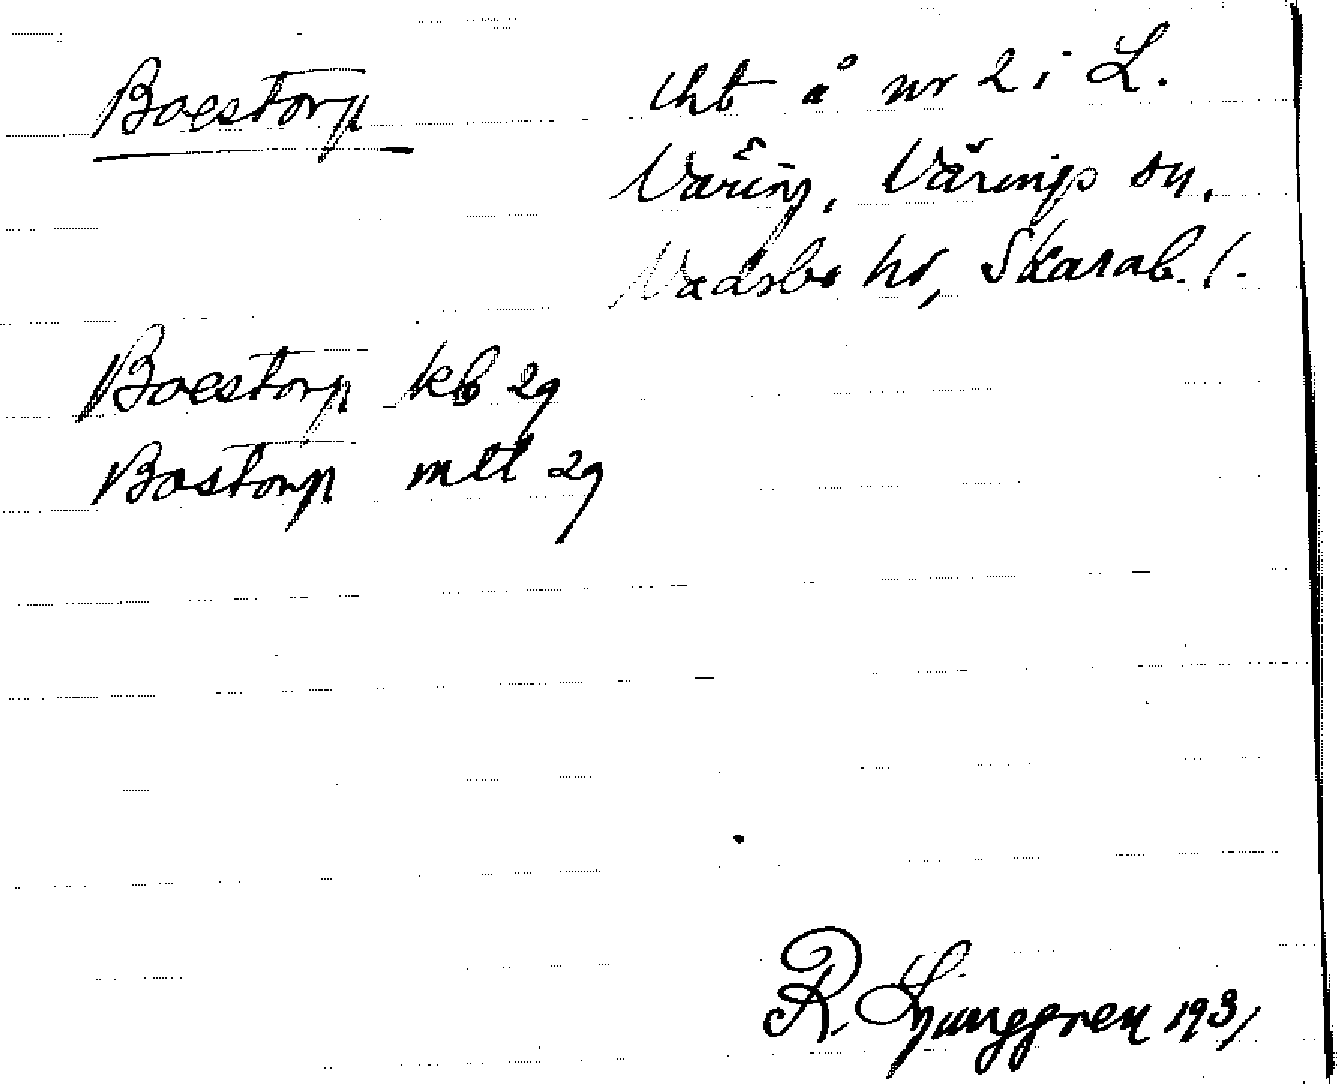 Boestorp
lht å nr 2 i L.
Väring, Värings sn,
Vadsbo hd, Skarab. l.
Boestorp kb 29
Bostorp mtl 29
R. Ljunggren 1931